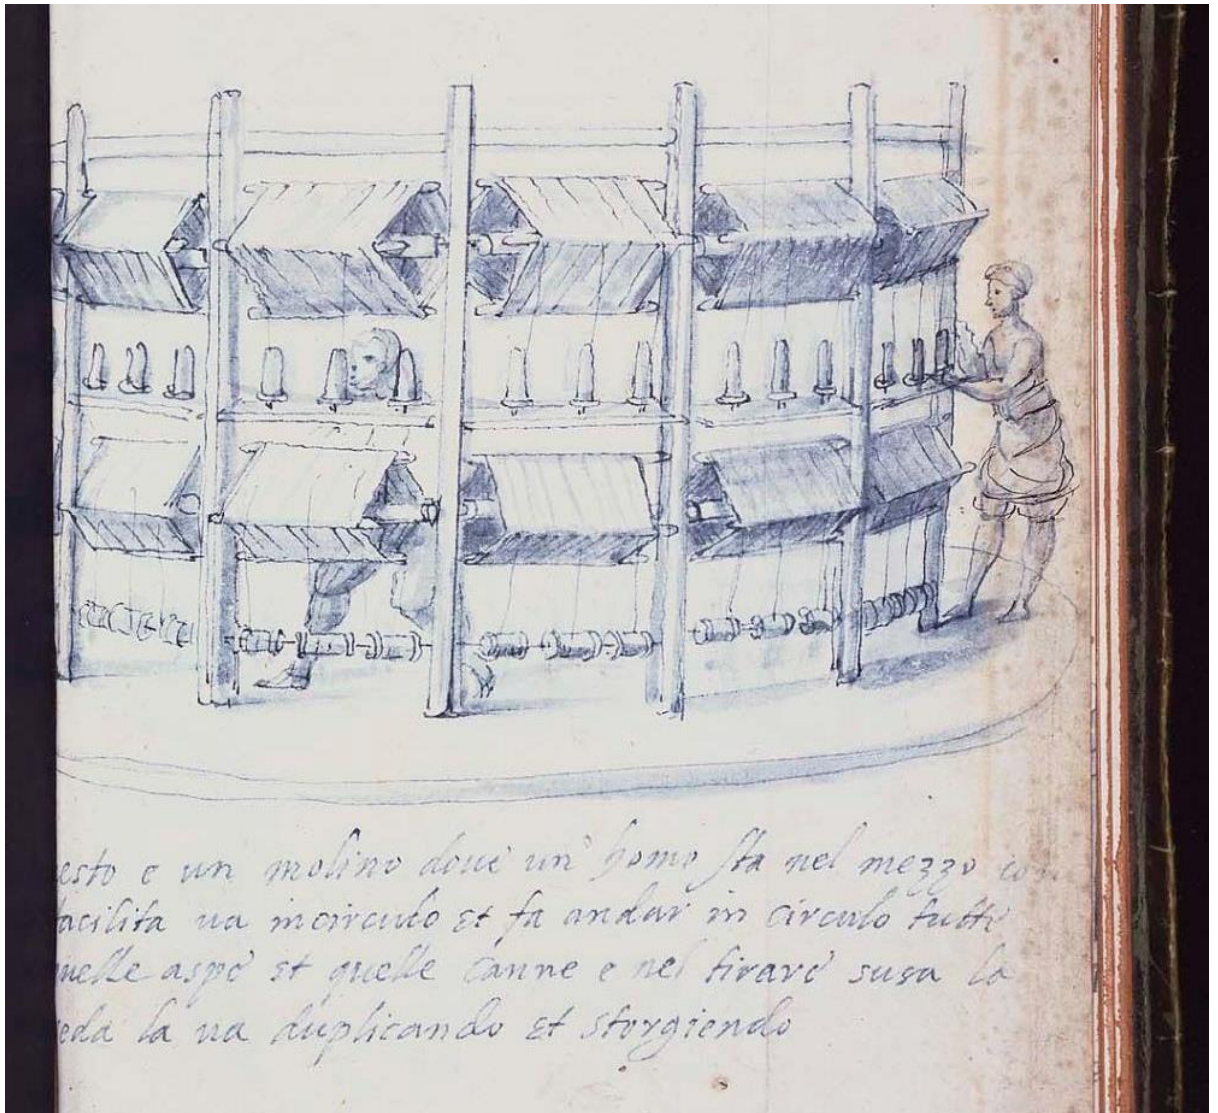 esto e un molino dove un' homo sta nel mezzo con
facilita va incirculo et fa andar in circulo tutte
quelle aspe et quelle canne e nel tirare susa la
seda la va duplicando et storgiendo